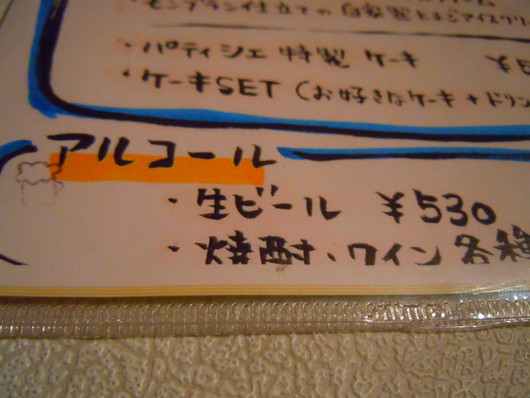 モンブラン仕立ての 自家製たまごアイスクリ
・パティシエ 特製 ケーキ ¥
・ケーキSET (お好きなケーキ + ドリン
アルコール
・生ビール ¥530
・焼酎、ワイン 各種